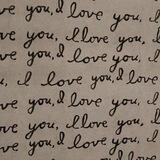 love you, I love you,
you, I love you, I love
love you, I love you,
you, I love you, I love
I love you, I love you,
love you, I love you,
you, I love you, I love
love you, I love you,
love you, I love you,